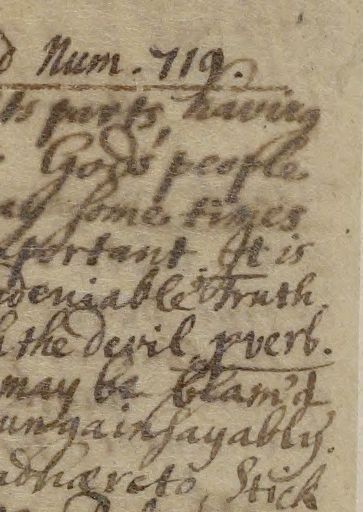 Num. 719.
its parts, having
God's people
some times
important. It is
deniable Truth.
the devil. pverb.
may be blam'd
ungainsayably.
adhære to, Stick